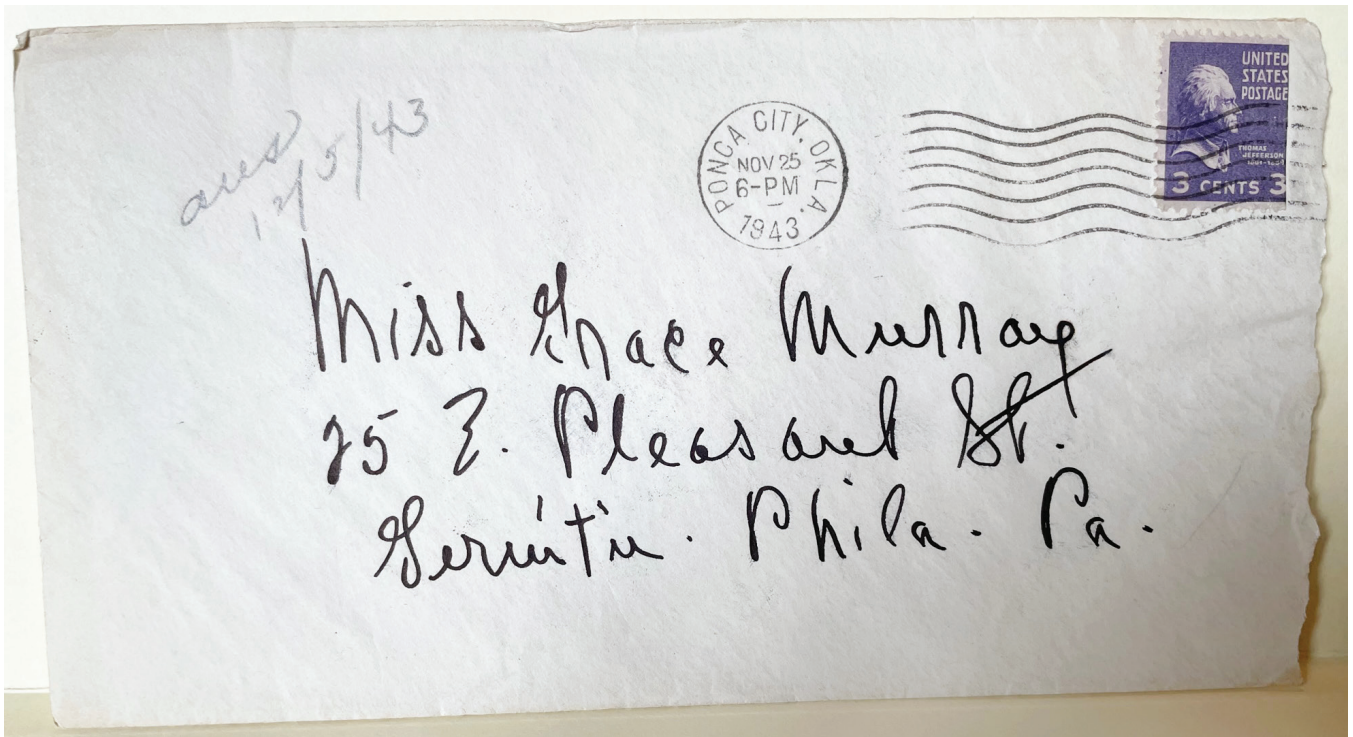 ansd
12/5/43
PONCA CITY, OKLA.
NOV 25
6-PM
1943
UNITED
STATES
POSTAGE
THOMAS
JEFFERSON
3 CENTS 3
Miss Grace Murray
25 E. Pleasant St.
Germ't'n. Phila. Pa.